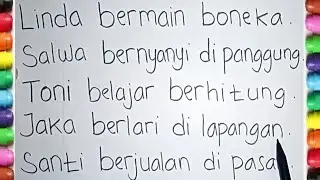 Linda bermain boneka.
Salwa bernyanyi di panggung.
Toni belajar berhitung.
Jaka berlari di lapangan.
Santi berjualan di pasar.